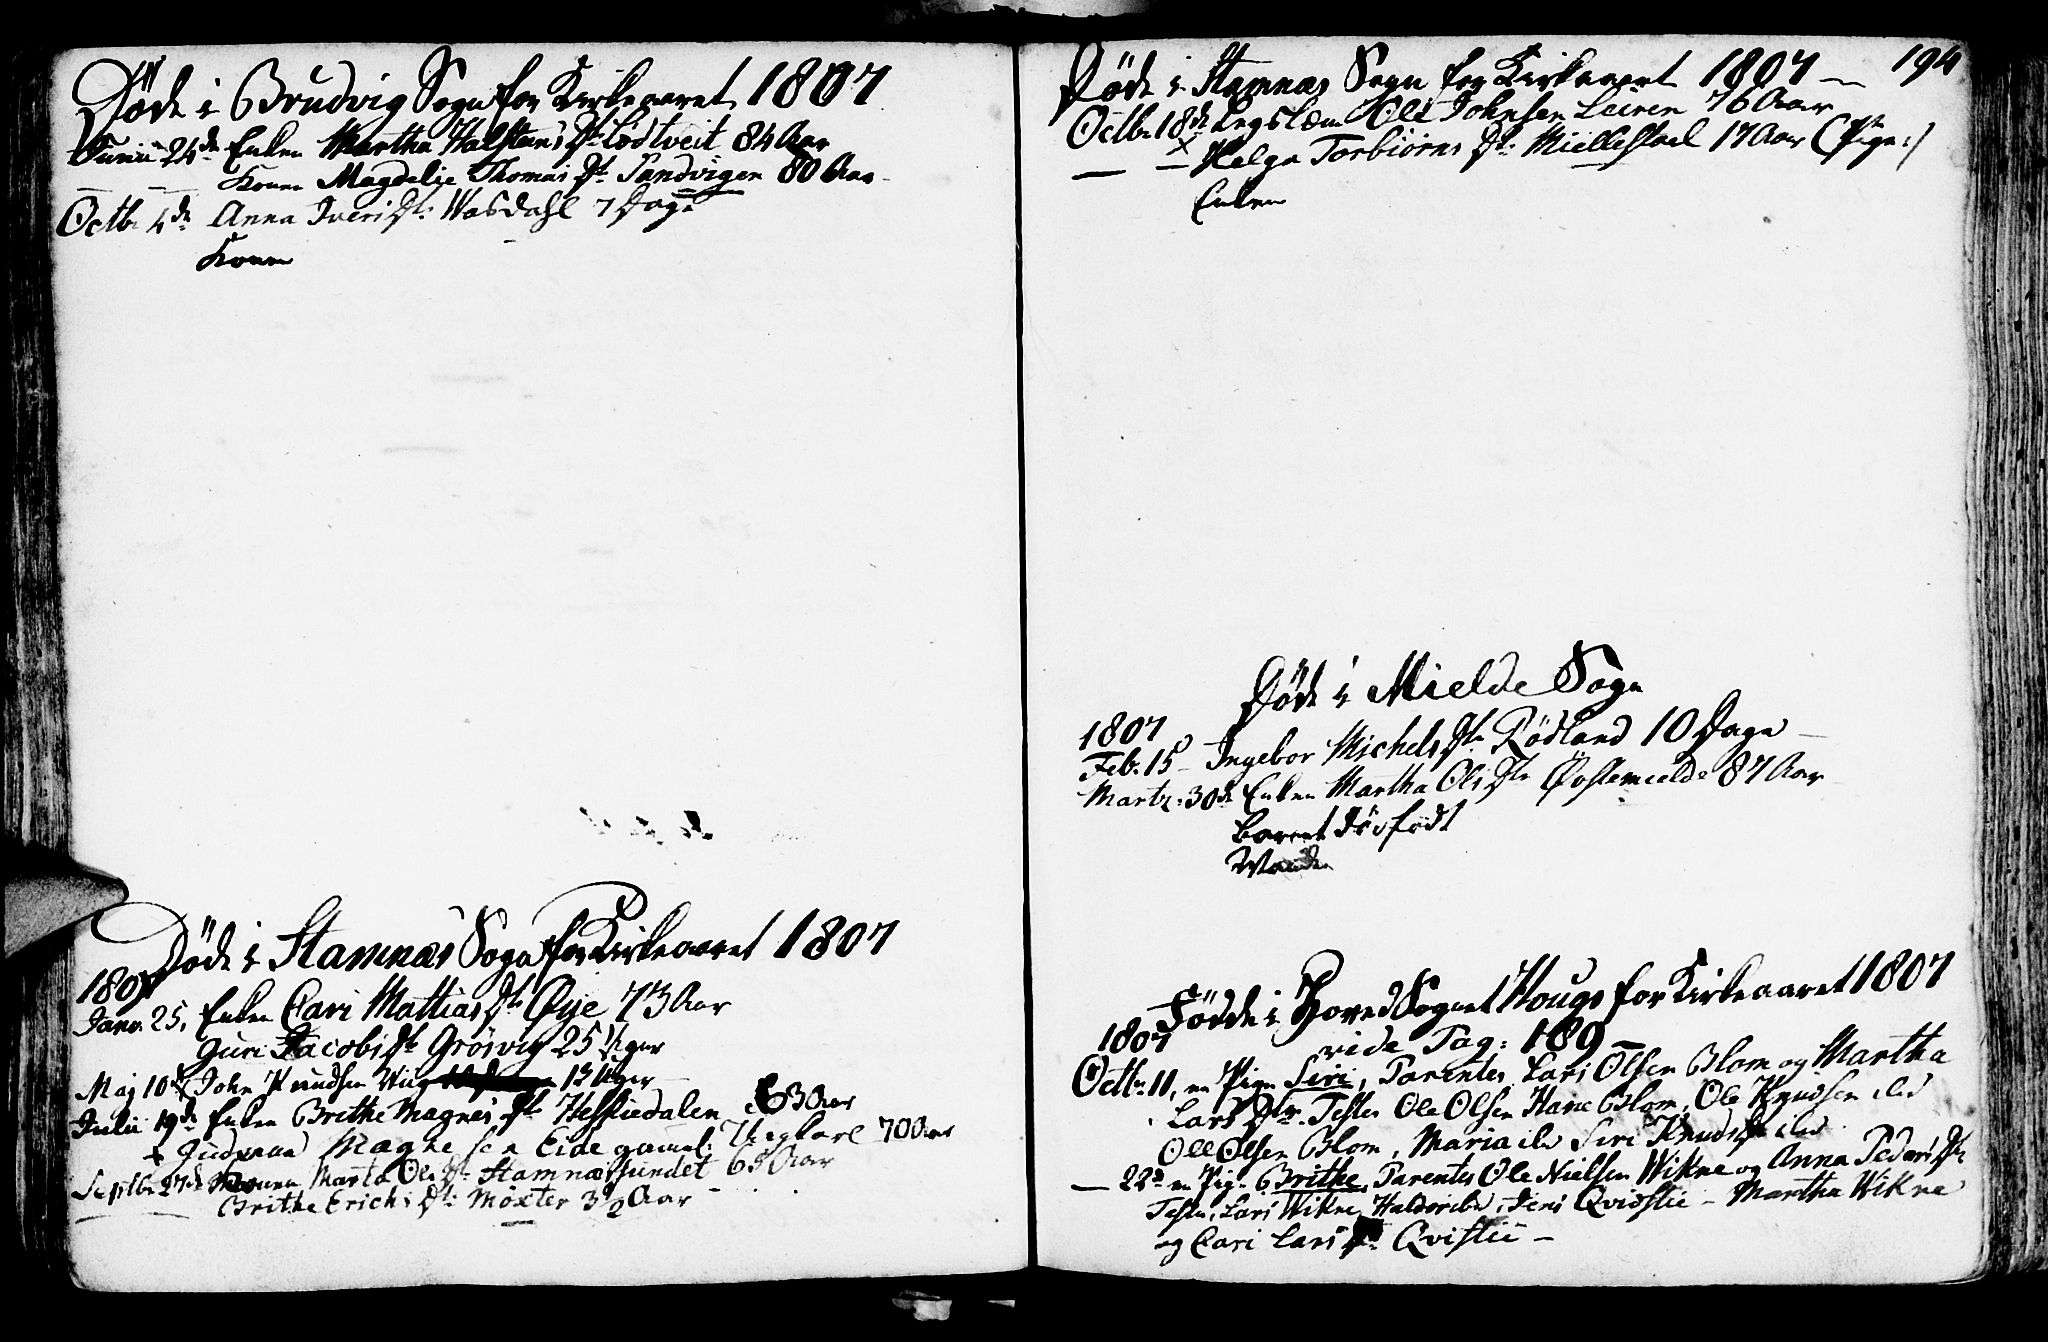 Døde i Brudvig Sogn for Kirkeaaret 1807
Junii 24de Enken Martha Halstens Dr. Lodtveit 84 Aar
— — Konen Magdelie Thomas Dr. Sandvigen 80 Aar
Octbr. 4de Anna Iveri Dr. Wasdahl 7 Dage
Konen
Døde i Stamnæs Sogn for Kirkeaaret 1807
1807
Janr. 25, Enken Cari Mattias Dr. Øye 73 Aar
Guri Jacobs Dr. Grøsvig 25 Uger
Maj 10de John Knudsen 13 Uger
Julii 19de Enken Brithe Magnes Dr. Helliedalen 63 Aar
Magnesen Eide gammel Ungkarl 70 Aar
Septbr. 27de Konen Marta Ols Dr. Stamnæssundet 65 Aar
Brithe Erichs Dr. Moxter 3½ Aar
Døde i Stamnæs Sogn for Kirkeaaret 1807 — 194
Octbr. 18de Legslæm Ole Johnsen Leiren 76 Aar
— — Helga Torbiørns Dr. Miellestael 17 Aar (Pige:/
Enken
Døde i Mielde Sogn
1807
Feb. 15 — Ingebor Michels Dr. Rødland 10 Dage —
Martz. 30de Enken Martha Ols Dr. Øvstemielde 87 Aar
Barnet dødfødt
Manden
Fødde i Hoved Sognet Hougs for Kirkeaaret 1807
1807 vide Pag: 189 —
Octbr. 11, en Pige Siri, Parentes Lars Olsen Blom og Martha
Lars Dr. Testes Ole Olsen Blom, Ole Knudsen ibd
Ole Olsen Blom, Maria ibd Siri Knuds Dr. ibd
— 22de en Pige Brithe Parentes Ole Nielsen Wikne og Anna Peders Dr.
Testes, Lars Wikne, Qvidstie — Martha Wikne
og Cari Lars Dr. Qvistii —